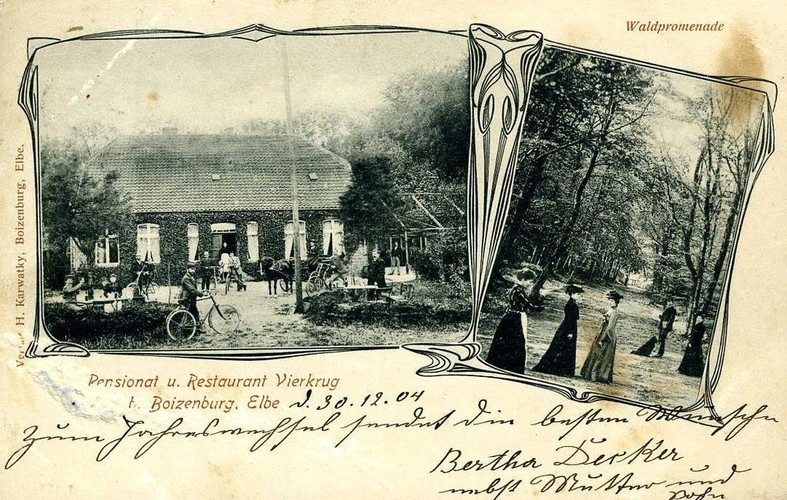 Waldpromenade
H. Karwatky, Boizenburg, Elbe.
Pensionat u. Restaurant Vierkrug
b. Boizenburg, Elbe d. 30.12.04
Zum Jahreswechsel sendet die besten Wünsche
Bertha Decker
nebst Mutter und
Sohn